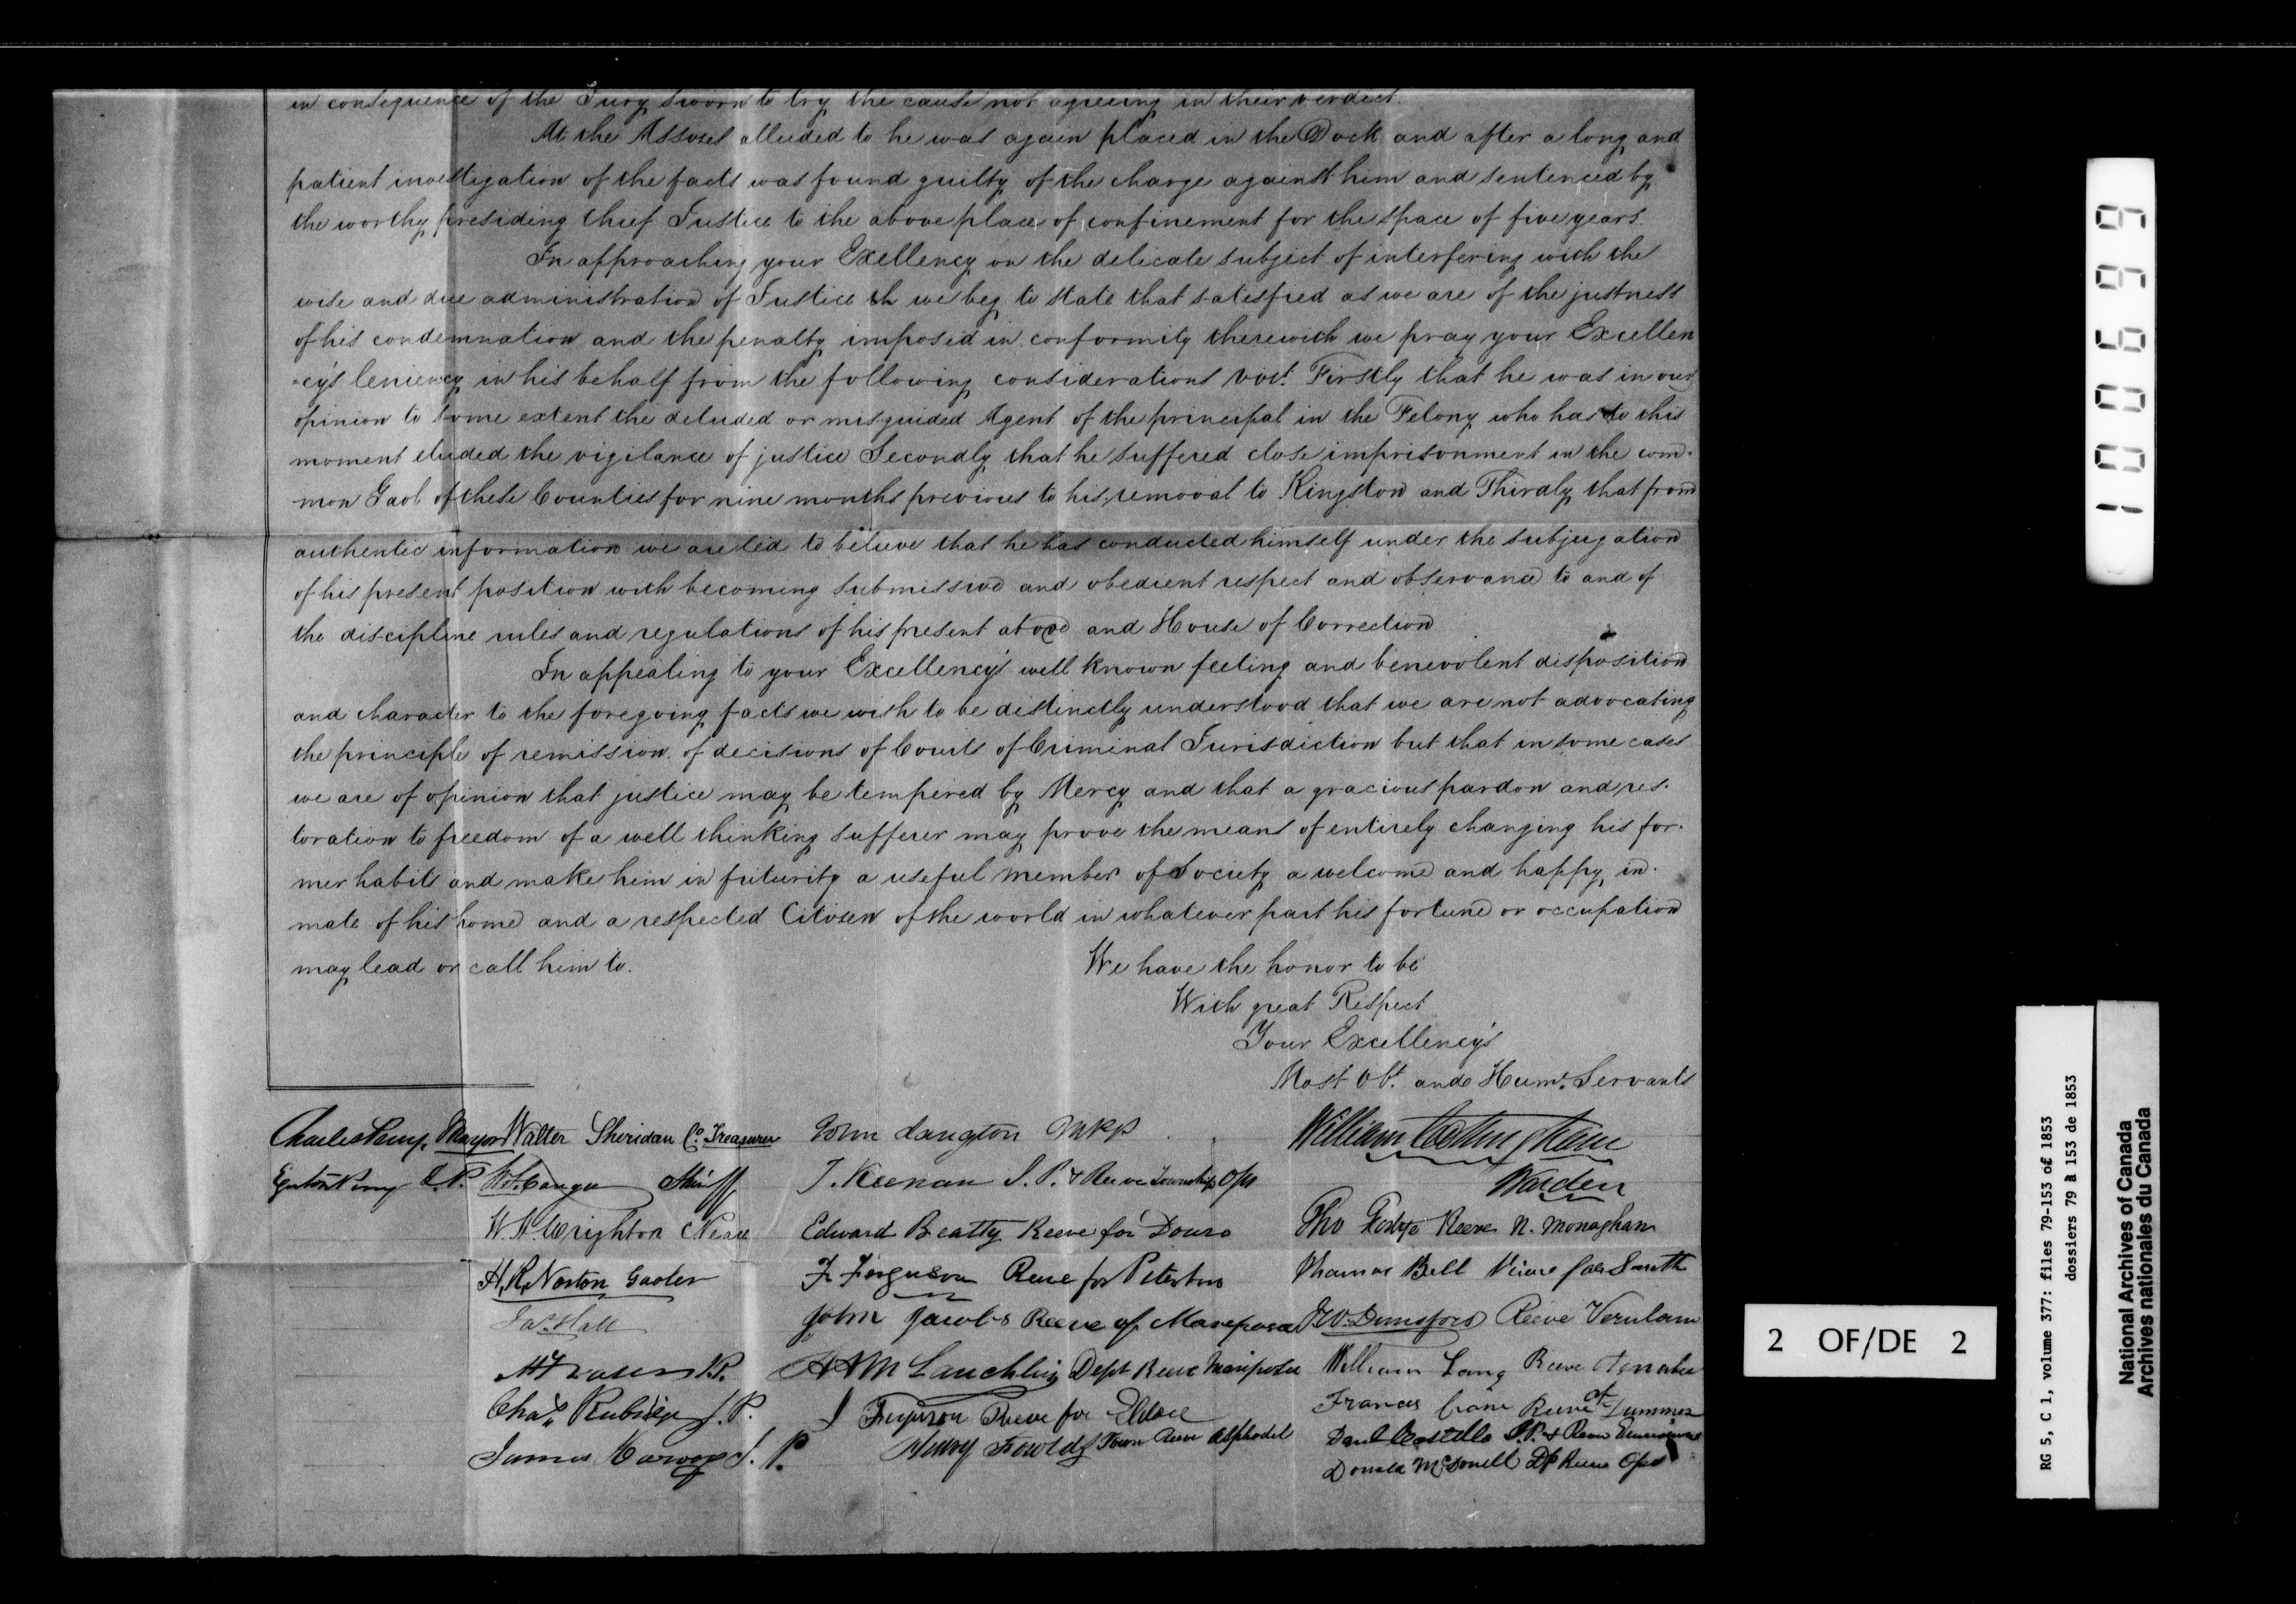 in consequence of the Jury sworn to try the cause not agreeing in their verdict.
At the Assises alluded to he was again placed in the Dock and after a long and
patient investigation of the facts was found guilty of the charge against him and sentenced by
the worthy presiding Chief Justice to the above place of confinement for the space of five years.
In approaching your Exellency on the delicate subject of interfering with the
wise and due administration of Justice th we beg to state that satisfied as we are of the justness
of his condemnation and the penalty imposed in conformity therewith we pray your Excellen
=cy's leniency in his behalf from the following considerations viz. Firstly that he was in our
opinion to some extent the deluded or misguided Agent of the principal in the Felony who has to this
moment eluded the vigilance of justice Secondly that he suffered close imprisonment in the com-
mon Gaol of these Counties for nine months previous to his removal to Kingston and Thirdly that from
authentic information we are led to believe that he has conducted himself under the subjugation
of his present position with becoming submission and obedient respect and observance to and of
the discipline rules and regulations of his present abode and House of Correction
In appealing to your Excellency's well known feeling and benevolent disposition
and character to the foregoing facts we wish to be distinctly understood that we are not advocating
the principle of remission of decisions of Courts of Criminal Jurisdiction but that in some cases
we are of opinion that justice may be tempered by Mercy and that a gracious pardon and res-
toration to freedom of a well thinking sufferer may prove the means of entirely changing his for-
mer habits and make him in futurity a useful member of Society a welcome and happy in-
mate of his home and a respected Citizen of the world in whatever part his fortune or occupation
may lead or call him to.
We have the honor to be
With great Respect
Your Excellency's
Most Obt. and Humt. Servants
Charles Perry Mayor Walter Sheridan Co. Treasurer John Langton MPP William Cottingham
J.P. Sheriff T. Keenan J.P. & Reeve Township Ops Warden
W. H. Wrighton Edward Beatty Reeve for Douro Tho Reeve N. Monaghan
H. R. Norton Gaoler F. Ferguson Reeve for Peterboro Thomas Bell Reeve for Smith
Jas. Hall John Jacobs Reeve of Mariposa J W. Dunsford Reeve Verulam
J.P. A A McLauchlin Dept Reeve Mariposa William Lang Reeve Otonabee
Chas Rubidge J.P. J Ferguson Reeve for Eldon Francis Crane Reeve of Dummer
James J.P. Henry Fowlds Town Reeve Asphodel Danl Costello J.P. & Reeve
Donald McDonell Dp Reeve Ops
100699
2 OF/DE 2
RG 5, C 1, volume 377: files 79-153 of 1853
dossiers 79 à 153 de 1853
National Archives of Canada
Archives nationales du Canada